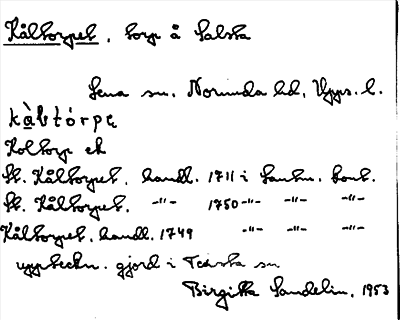 Kåltorpet, torp å Salsta
Lena sn. Norunda hd, Upps. l.
kà̀ltórpę
Koltorp ek
St. Kåltorpet, handl. 1711 i Lantm. kont.
St. Kåltorpet. -"- 1750 -"- -"- -"-
Kåltorpet, handl. 1749 -"- -"- -"-
uppteckn. gjord i Tensta sn
Birgitta Sandelin, 1953